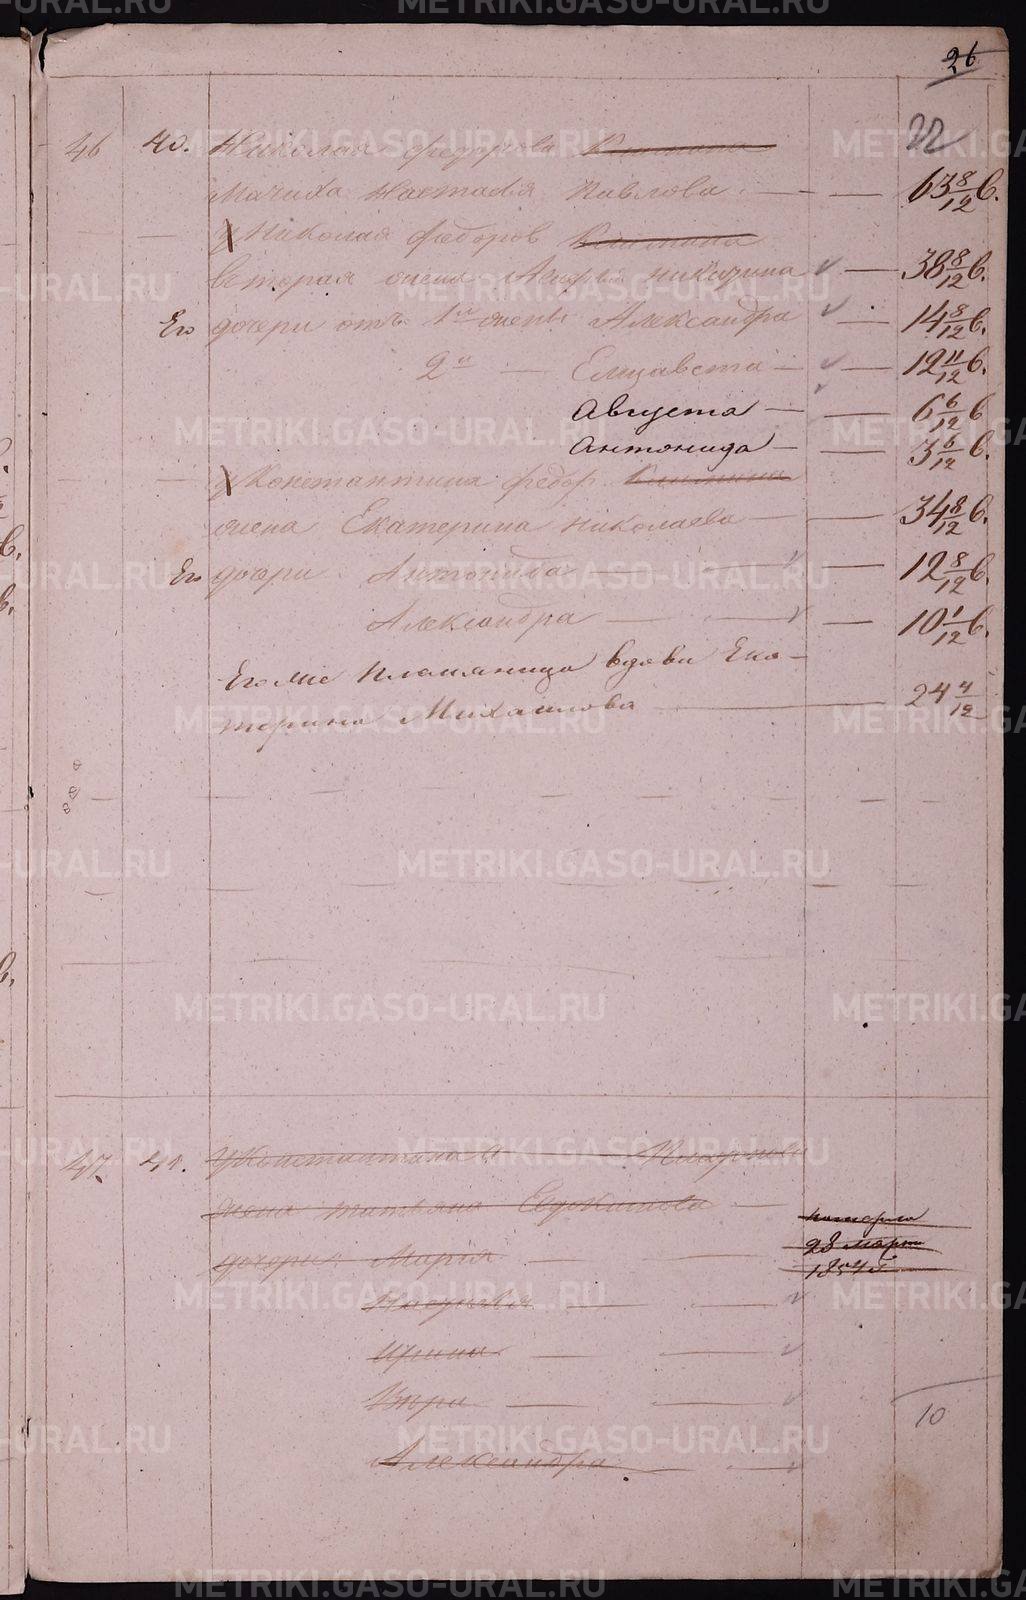 26
22
46 40. Николая федорова
Мачиха Настасья Павлова — — 63 8/12 в.
— у Николая Федоров
вторая жена никитина — 38 8/12 в.
Его дочери отъ 1й жены Александра — 14 8/12 в.
2й — Елизавета — — 12 11/12 в.
Августа — — 6 6/12 в
Антонида — — 3 6/12 в.
— у Константина федор.
жена Екатерина николаева — — 34 8/12 в.
Его дочери Антонида — — 12 8/12 в.
Александра — — — 10 1/12 в.
Его же племяница вдова Ека-
терина Михаилова — 24 4/12
47. 41. у Константина
жена татьяна Евдокимова —
28 март
дочери: Мария — —
1854 г.
— —
Ирина — —
Вѣра — —
Александра — —
10
METRIKI.GASO-URAL.RU